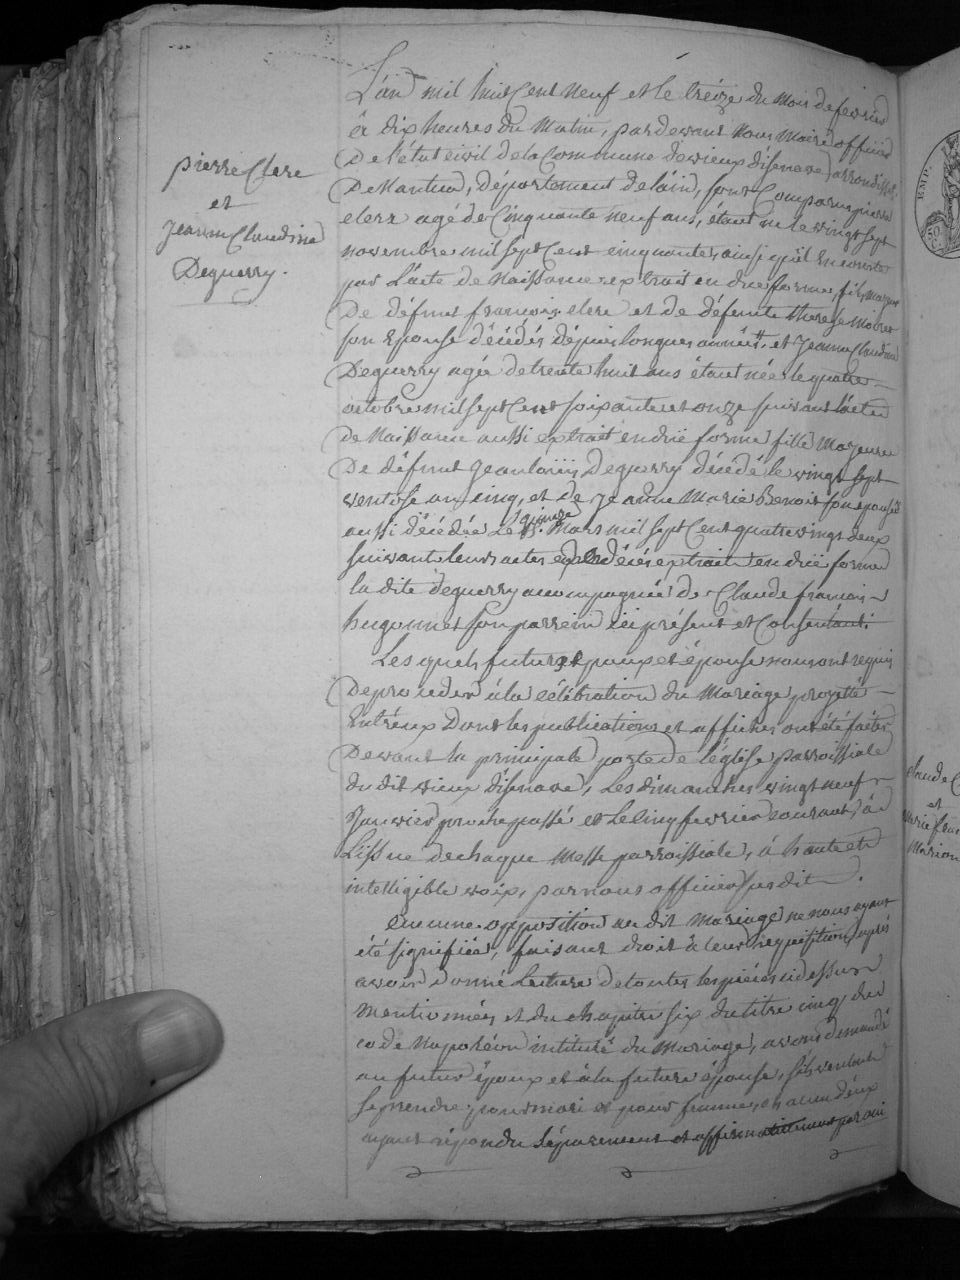 pierre Clerc
et
jeanne Claudine
Deguerry.
L'an mil huit Cent neuf et le treize du mois de fevrier
à dix heures du Matin, pardevant Nous Maire officier
De l'état civil de la Commune de vieux d'isenave, arrondisst.
De Nantua, Département de lain, sont Comparus pierre
clerc agé de Cinquante neuf ans, étant né le vingt sept
novembre mil sept Cent cinquante, ainsi qu'il en conste
par L'acte de Naissance extrait en due forme, fils majeur
De défunt françois clerc et de défunte therese
son Epouse décédés dépuis longues années, et Jeanne Claudine
Deguerry agée de trente huit ans étant née le quatre
octobre mil sept Cent soixante et onze suivant l'acte
de Naissance aussi extrait en due forme, fille Majeure
De défunt Jean Deguerry décédé le vingt sept
ventose an cinq, et de Jeanne Marie Benoit son épouse
aussi décédée Le quinze Mars mil sept Cent quatre vingt deux
suivant leurs actes de décés extraits en due forme
la dite deguerry accompagnée de Claude francois
hugonnet son parrein ici présent et Consentant.
Les quels futurs époux et épouse nous ont requis
De proceder à la célébration du Mariage projetté
Entr'eux Dont les publications et affiches ont été faites
Devant la principale porte de L'église parroissiale
du dit vieux d'isenave, Les dimanches vingt neuf
Janvier proche passé et le cinq fevrier courant, à
L'issue de chaque Messe parroissiale, à haute et
intelligible voix, par nous officier susdit.
aucune opposition au dit Mariage ne nous ayant
été signifiée, faisant droit à leur requisition, après
avoir Donné Lecture de toutes les pièces ci dessus
Mentionnées et du chapitre six du titre cinq, du
code Napoléon intitulé du Mariage, avons demandé
au futur époux et à la future épouse, s'ils veulent
se prendre pour mari et pour femme, chacun d'eux
ayant répondu séparement et affirmativement par oui
EMP.
Claude C
et
Marion